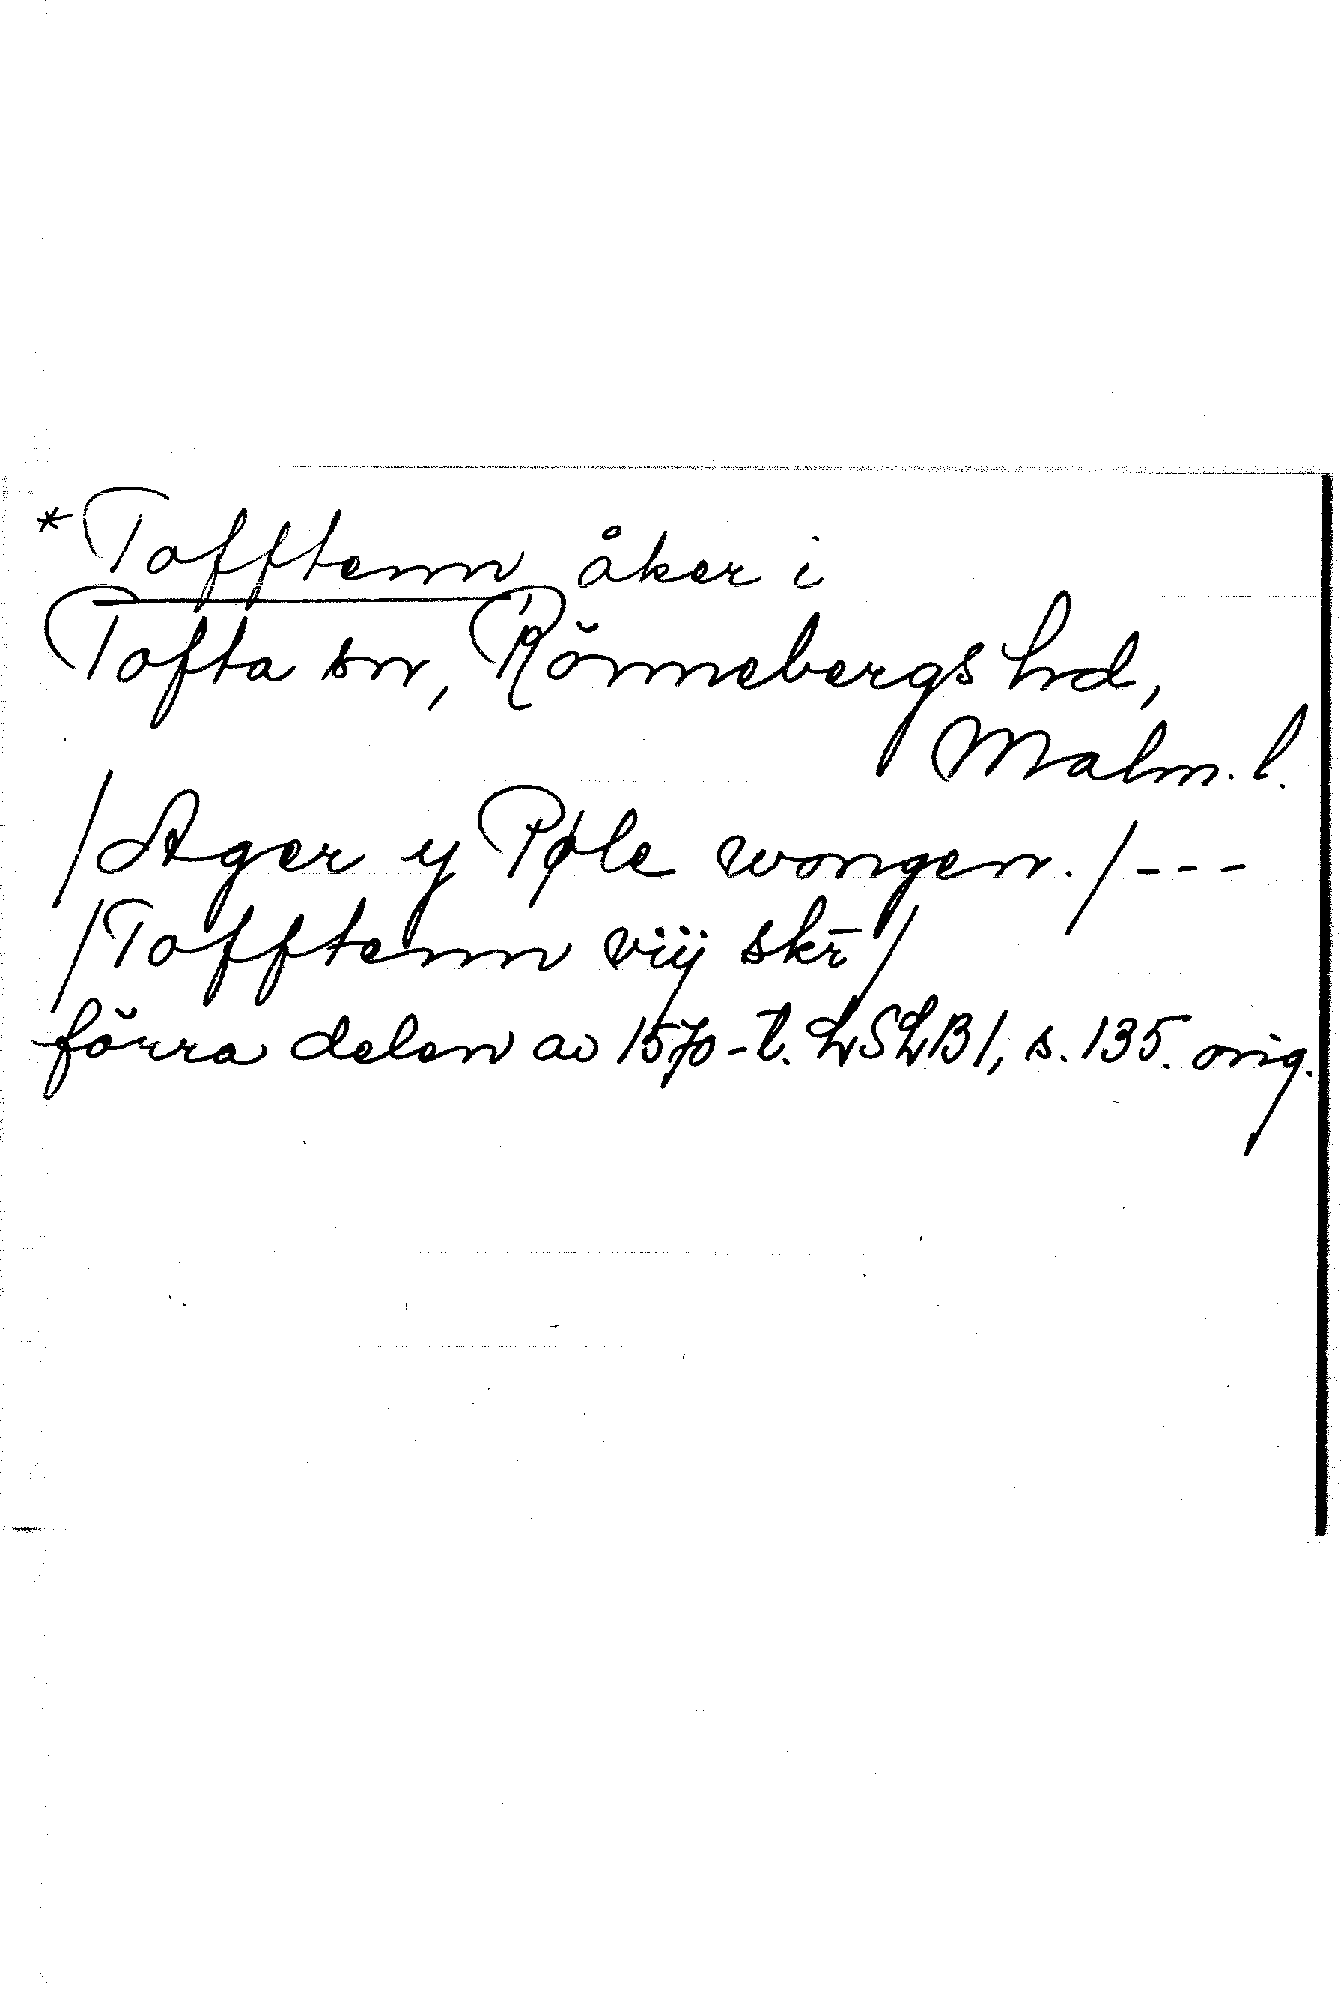 *Tofftenn åker i
Tofta sn, Rönnebergs hd,
Malm. l.
/Ager y Pøle wongen./---
/Tofftenn viij skr̄/
förra delen av 1570-t. LSLB1, s. 135. orig.